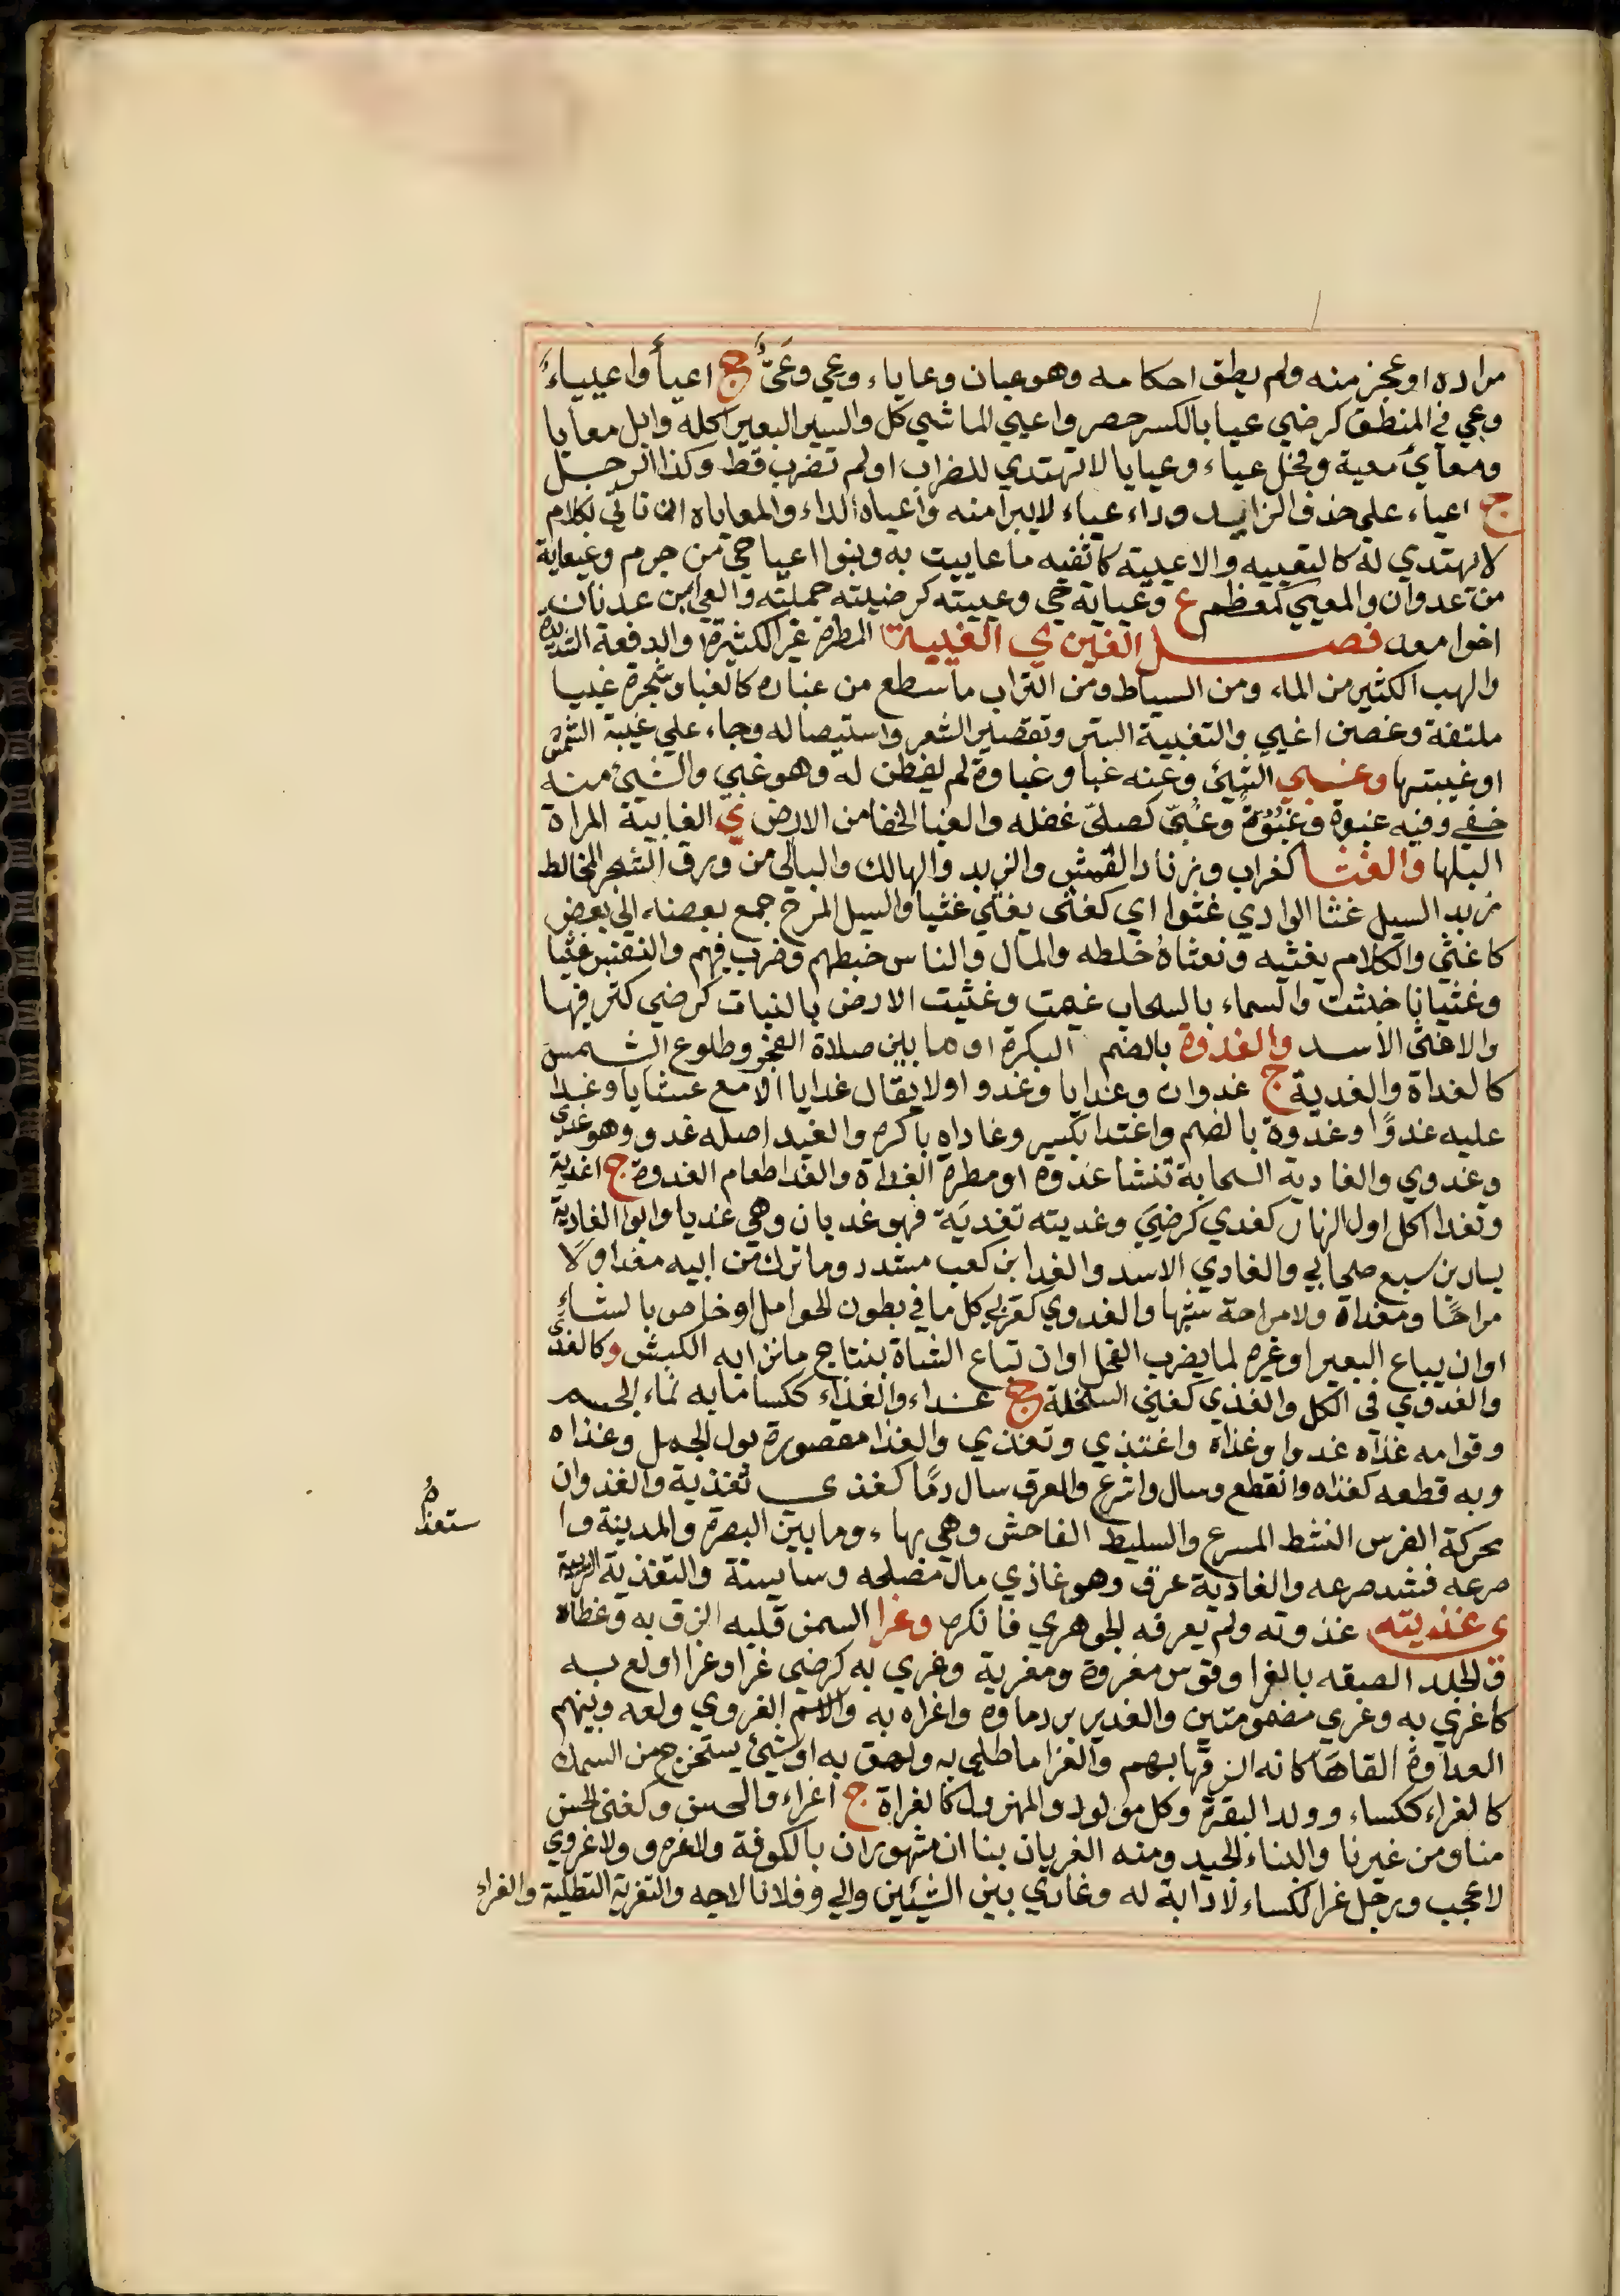 مراده او عجز منه ولم يطق احكامه وهو عيان وعاياء وعي وعَيٌّ ج اعيأ واعيياءً
وعي في المنطق كرضي عيا بالكسر حصر واعيي الماشي كل والسير البعير اكله وابل معايا
ومعايٍ معية وفحل عياء وعيايا لا تهتدي للضراب او لم تضرب قط وكذا الرجل
ج اعياء علي حذف الزايد وداء عياء لا يبرا منه واعياه الداء والمعاياه ان تاتي بكلام
لا يهتدي له كالتعييه والاعيية كاثفيه ما عاييت به وبنوا اعيا حي من جرم وعيعاية
من عدوان والمعيي كمعظم ع وعياية حي وعييته كرضيته جهلته والعي ابن عدنان
اخوا معد فصل الغين ي الغبية المطرة غير الكثيرة والدفعة الشديدة
والهب الكثير من الماء ومن السياط ومن التراب ما سطع من غباره كالغبا وشجرة غبيا
ملتفة وغصن اغبي والتغبية الستر وتقصير الشعر واستيصاله وجاء علي غيبة الشمس
او غيبتها وغبي الشيئ وعنه غبا وغباوة لم يفطن له وهو غبي والشيئ منه
خفي وفيه غبوة وغُبُوّةٌ وغُبيّ كصليّ غفله والغبا الخفا من الارض ي الغابية المراة
البلها والغثا كغراب وزنار القمش والزبد والهالك والبالي من ورق الشجر المخالط
زبد السيل غثا الوادي غثوا اي كغثي يغثي غثيا والسيل المرتع جمع بعضه الي بعض
كاغثي والكلام يغثيه ويغثاهُ خلطه والمال والناس خبطهم وضرب فيهم والنفس غثيا
وغثيانا خبثت والسماء بالسحاب غيمت وغثيت الارض بالنبات كرضي كثر فيها
والاغثي الاسد والغدوة بالضم البكرة او ما بين صلاة الفجر وطلوع الشمس
كالغداة والغدية ج غدوات وغدايا وغدو اولا يقال غدايا الا مع عشايا وغدا
عليه غدوًا وغدوة بالضم واغتدا بكر وغاداه باكره والغد اصله غدو وهو غدي
وغدوي والغادية السحابة تنشا غدوة او مطرة الغداة والغدا طعام الغدوة ج اغدية
وتغدا اكل اول النهار كغدي كرضيَ وغديته تغديَة فهو غديان وهي غديا وابوا الغادية
يسار بن سبع صحابي والغادي الاسد والغدا بن كعب مشدد وما ترك من ابيه مغدا ولا
مراحًا ومغداة ولا مراحة شبها والغدوي كعربي كل ما في بطون الحوامل او خاص بالشاء
او ان يباع البعير او غيره لما يضرب الفحل او ان تباع الشاة بنتاج ما نزا به الكبش وكالغذي
والغذوي في الكل والغذي كغني السخلة ج غذاء والغذاء ككسا ما به نماء الجسم
وقوامه غذاه غذوا وغذاه واغتذي وتغذي والغذا مقصورة بول الجمل وغذاه
وبه قطعه كغذاه وانقطع وسال واسرع والعرق سال دمًا كغذي تغذية والغذوان
محركة الفرس النشط المسرع والسليط الفاحش وهي بهاء وما بين البصرة والمدينة وا
ستغذاهُ
صرعه فشد صرعه والغاذية عرق وهو غاذي مال مصلحه وسايسة والتغذية التربية
ي غذيته غذوته ولم يعرفه الجوهري فانكره وغرا السمن قلبه الزق به وغطاه
ق الجلد الصقه بالغرا وقوس مغروة ومغرية وغري به كرضي غرا وغرا اولع به
كاغري به وغري مضمومتين والغدير برد ماوه واغراه به والاسم الغروي ولعه وبينهم
العداوة القاهَا كانه الزقها بهم والغرا ما طلي به ولصق به او شيئ يستخرج من السمك
كالغراء ككساء وولد البقرة وكل مولود والمهزول كالغراة ج اغراء والحسن وكغني الحسن
منا ومن غيرنا والبناء الجيد ومنه الغريان بنا ان مشهوران بالكوفة ولا غرو ولا غروي
لا عجب ورجل غرا ككساء لا دابة له وغاري بين الشيئين والي وفلانا لاجه والتغرية التطلية والغراء